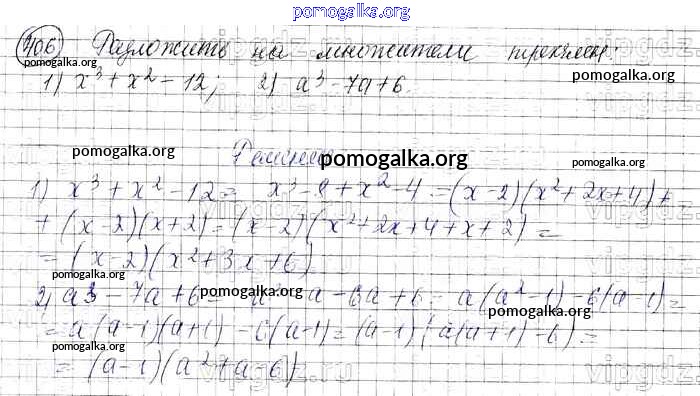 pomogalka.org
406) Разложить на множители трехчлен:
pomogalka.org
1) x³ + x² - 12; 2) a³ - 7a + 6.
pomogalka.org
pomogalka.org
Решение
pomogalka.org
pomogalka.org
1) x³ + x² - 12 = x³ - 8 + x² - 4 = (x - 2)(x² + 2x + 4) +
+ (x - 2)(x + 2) = (x - 2)(x² + 2x + 4 + x + 2) =
pomogalka.org
= (x - 2)(x² + 3x + 6)
pomogalka.org
2) a³ - 7a + 6 = a - 6a + 6 = a(a² - 1) - 6(a - 1) =
pomogalka.org
pomogalka.org
= a(a - 1)(a + 1) - 6(a - 1) = (a - 1)(a(a + 1) - 6) =
pomogalka.org
pomogalka.org
= (a - 1)(a² + a - 6)
pomogalka.org
vipgdz.